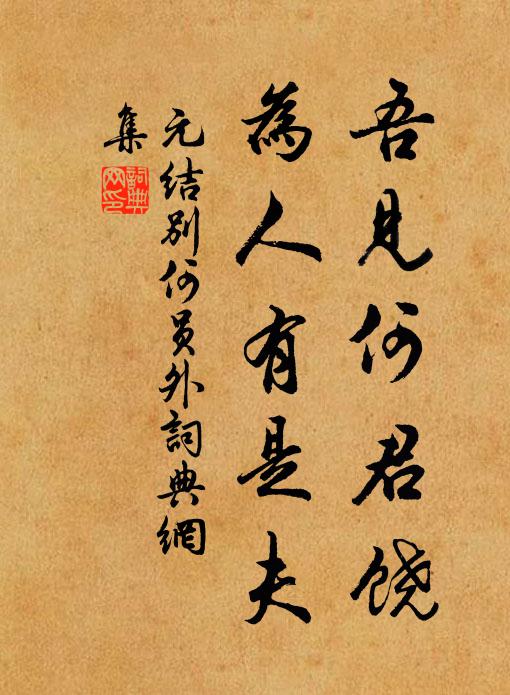 吾见何君饶
為人有是夫
元结别何员外詞典網
集
詞典网印